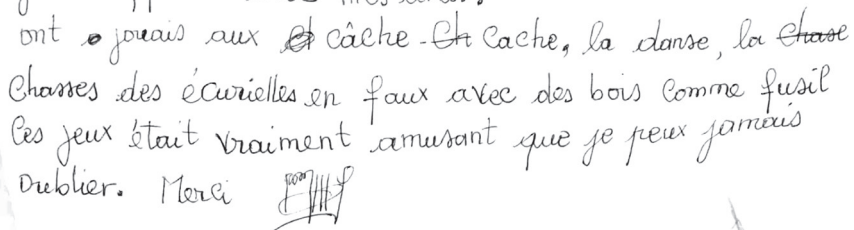 ont jouais aux câche-Cache, la danse, la
Chasses des écurielles en faux avec des bois comme fusil
Ces jeux était vraiment amusant que je peux jamais
Oublier. Merci